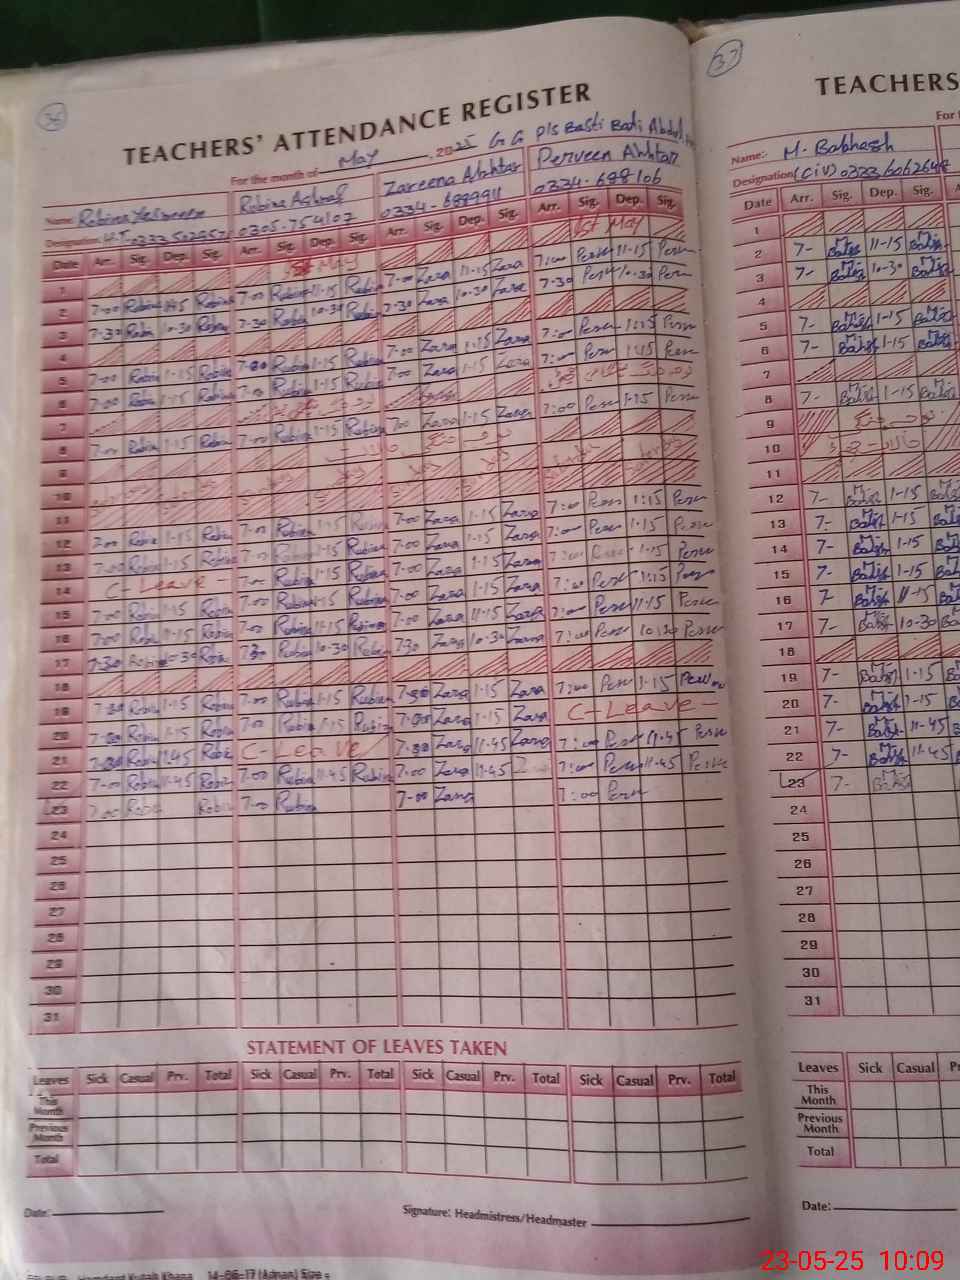 36
TEACHERS' ATTENDANCE REGISTER
For the month of May 2025 G.G P/s Basti Bati Abdul
Name: Robina Yasmeen Robina Ashraf Zareena Akhtar Perveen Akhtar
Designation: H.T 0305-754107 0334-6899911 0334-688106
Date Arr. Sig. Dep. Sig. Arr. Sig. Dep. Sig. Arr. Sig. Dep. Sig. Arr. Sig. Dep. Sig.
1 1st May 1st May
2 7-00 Robina Robina 7-00 Robina 11-15 Robina 7-00 Zara 11-15 Zara 7:00 Perv 11-15 Perv
3 7-30 Robina 10-30 Robina 7-30 Robina 10-30 Robina 7-30 Zara 10-30 Zara 7-30 Perv 10-30 Perv
4
5 7-00 Robina 1-15 Robina 7-00 Robina 1-15 Robina 7-00 Zara 1-15 Zara 7:00 Perv 1:15 Perv
6 7-00 Robina 1-15 Robina 7-00 Robina 1-15 Robina 7-00 Zara 1-15 Zara 7:00 Perv 1:15 Perv
7
8 7-00 Robina 1-15 Robina 7-00 Robina 1-15 Robina 7-00 Zara 1-15 Zara 7:00 Perv 1-15 Perv
9
10
11
12 7-00 Robina 1-15 Robina 7-00 Robina 1-15 Robina 7-00 Zara 1-15 Zara 7:00 Perv 1:15 Perv
13 7-00 Robina 1-15 Robina 7-00 Robina 1-15 Robina 7-00 Zara 1-15 Zara 7:00 Perv 1-15 Perv
14 C-Leave- 7-00 Robina 1-15 Robina 7-00 Zara 1-15 Zara 7:00 Perv 1-15 Perv
15 7-00 Robina 1-15 Robina 7-00 Robina 1-15 Robina 7-00 Zara 1-15 Zara 7:00 Perv 1:15 Perv
16 7-00 Robina 11-15 Robina 7-00 Robina 11-15 Robina 7-00 Zara 11-15 Zara 7:00 Perv 11-15 Perv
17 7-30 Robina 10-30 Robina 7-30 Robina 10-30 Robina 7-30 Zara 10-30 Zara 7:00 Perv 10:30 Perv
18
19 Robina 1-15 Robina 7-00 Robina 1-15 Robina Zara 1-15 Zara 7:00 Perv 1-15 Perv
20 7-00 Robina 1-15 Robina 7-00 Robina 1-15 Robina 7-00 Zara 1-15 Zara C-Leave-
21 Robina 11.45 Robina C-Leave Zara 11-45 Zara 7:00 Perv 11-45 Perv
22 7-00 Robina 11-45 Robina 7-00 Robina 11-45 Robina 7-00 Zara 11-45 7:00 Perv 11-45 Perv
23 7-00 Robina Robina 7-00 Robina 7-00 Zara 7:00 Perv
24
25
26
27
28
29
30
31
STATEMENT OF LEAVES TAKEN
Leaves Sick Casual Prv. Total Sick Casual Prv. Total Sick Casual Prv. Total Sick Casual Prv. Total
This Month
Previous Month
Total
Date: Signature: Headmistress/Headmaster
Hamdard Kutab Khana 14-06-17 (Adnan) Size
37
TEACHERS
For t
Name:- M. Bakhash
Designation (Civ) 0333.6062644
Date Arr. Sig. Dep. Sig. A
1
2 7- Bakhsh 11-15 Bakhsh
3 7- Bakhsh 10-30 Bakhsh
4
5 7- Bakhsh 1-15 Bakhsh
6 7- Bakhsh 1-15 Bakhsh
7
8 7- Bakhsh 1-15 Bakhsh
9
10
11
12 7- Bakhsh 1-15
13 7- Bakhsh 1-15
14 7- Bakhsh 1-15
15 7- Bakhsh 1-15
16 7- Bakhsh 11-15
17 7- Bakhsh 10-30
18
19 7- Bakhsh 1-15
20 7- Bakhsh 1-15
21 7- Bakhsh 11-45
22 7- Bakhsh 11-45
23 7- Bakhsh
24
25
26
27
28
29
30
31
Leaves Sick Casual
This Month
Previous Month
Total
Date:
23-05-25 10:09